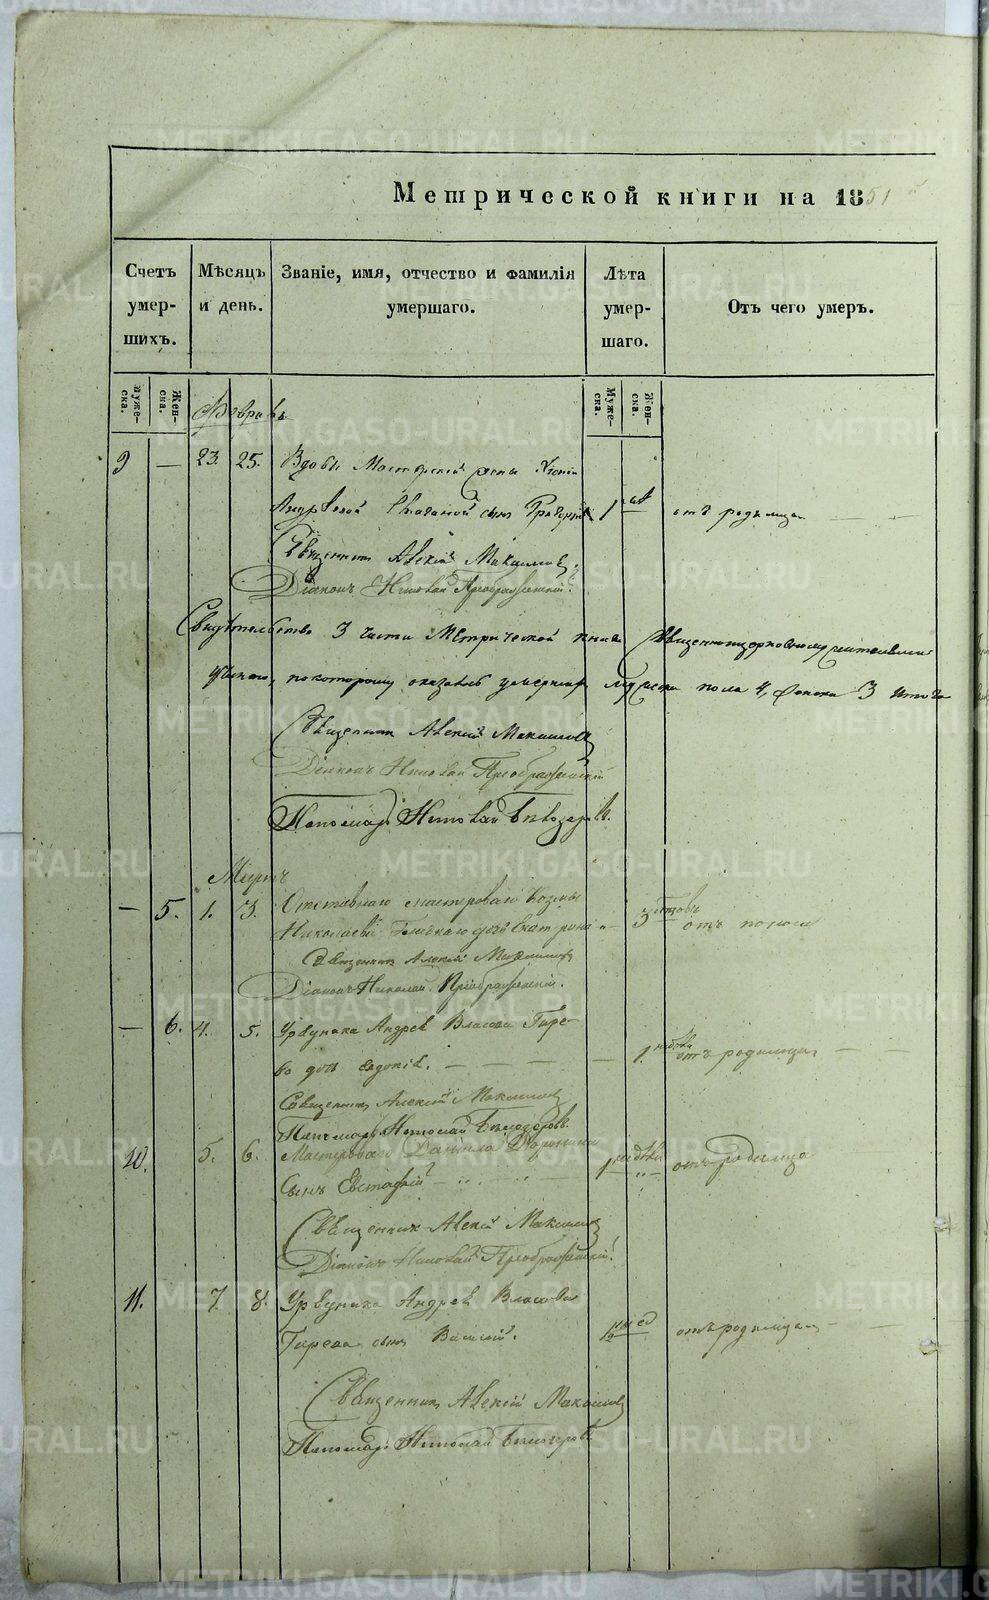 Метрической книги на 1851
Счетъ умер- шихъ.
Мѣсяцъ и день.
Званіе, имя, отчество и фамилія умершаго.
Лѣта умер- шаго.
Отъ чего умеръ.
Муже- ска.
Жен- ска.
Муже- ска.
Жен- ска.
Февраль
9 — 23. 25. Вдовы Мастерской жены
Андреевой сынъ Григорій 1 отъ родимца
Священникъ Алексій Максимовъ.
Діаконъ Николай Преображенскій.
Свидѣтельство 3 части Метрической книги Священноцерковнослужителями
по которому оказалось умершихъ мужеска пола 4, женска 3 итого
Священникъ Алексій Максимовъ
Діаконъ Николай Преображенскій
Пономарь Николай Бѣлозеровъ.
Мартъ
— 5. 1. 3. Отставнаго мастероваго Козмы
Николаева дочь Екатерина — 3 отъ поноса
Священникъ Алексій Максимовъ
Діаконъ Николай Преображенскій.
— 6. 4. 5. Урочника Андрея Власова Гире-
ва дочь Евдокія. — — — — 1. недѣли отъ родимца — —
Священникъ Алексій Максимовъ
Пономарь Николай Бѣлозеровъ.
10. 5. 6. Мастероваго Данила Доронина
сынъ Евстафій — „ — „ — 1 недѣли отъ родимца
Священникъ Алексій Максимовъ
Діаконъ Николай Преображенскій.
11. 7. 8. Урочника Андрея Власова
Гирева сынъ Василій. отъ родимца — —
Священникъ Алексій Максимовъ
Пономарь Николай Бѣлозеровъ
METRIKI.GASO-URAL.RU